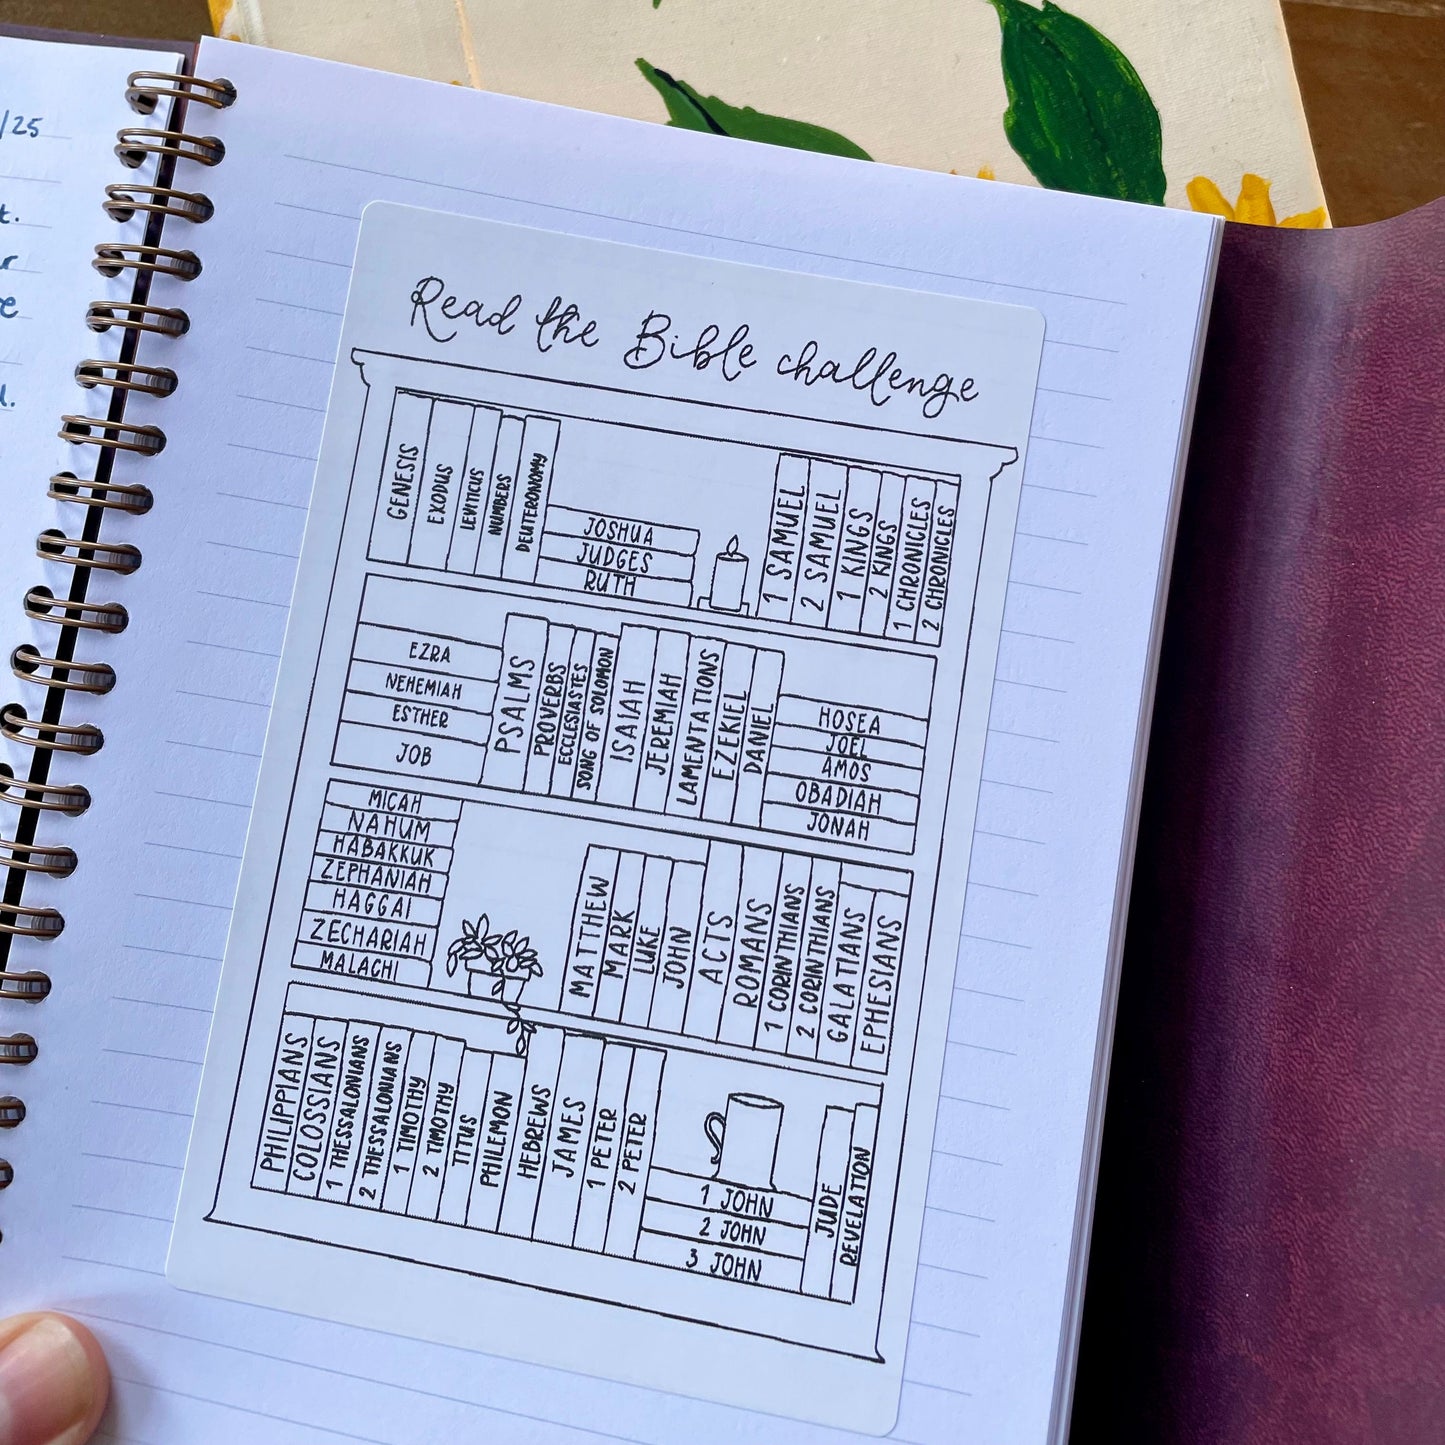 /25
t.
r
e
d.
Read the Bible challenge
GENESIS
EXODUS
LEVITICUS
NUMBERS
DEUTERONOMY
JOSHUA
JUDGES
RUTH
1 SAMUEL
2 SAMUEL
1 KINGS
2 KINGS
1 CHRONICLES
2 CHRONICLES
EZRA
NEHEMIAH
ESTHER
JOB
PSALMS
PROVERBS
ECCLESIASTES
SONG OF SOLOMON
ISAIAH
JEREMIAH
LAMENTATIONS
EZEKIEL
DANIEL
HOSEA
JOEL
AMOS
OBADIAH
JONAH
MICAH
NAHUM
HABAKKUK
ZEPHANIAH
HAGGAI
ZECHARIAH
MALACHI
MATTHEW
MARK
LUKE
JOHN
ACTS
ROMANS
1 CORINTHIANS
2 CORINTHIANS
GALATIANS
EPHESIANS
PHILIPPIANS
COLOSSIANS
1 THESSALONIANS
2 THESSALONIANS
1 TIMOTHY
2 TIMOTHY
TITUS
PHILEMON
HEBREWS
JAMES
1 PETER
2 PETER
1 JOHN
2 JOHN
3 JOHN
JUDE
REVELATION